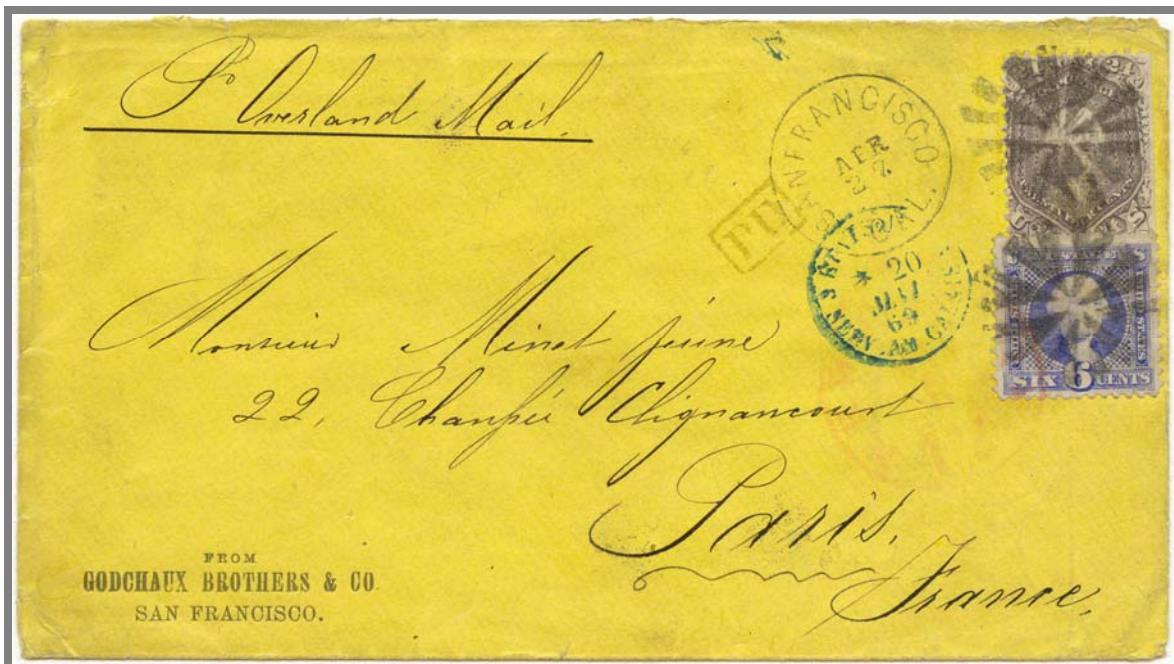 Pr Overland Mail.
SAN FRANCISCO
APR
27
CAL.
PD
20
MAI
69
SERV. AM. CALAIS
24
U S
UNITED STATES
SIX 6 CENTS
Monsieur Minet jeune
22, Chaussée Clignancourt
Paris.
France.
FROM
GODCHAUX BROTHERS & CO.
SAN FRANCISCO.